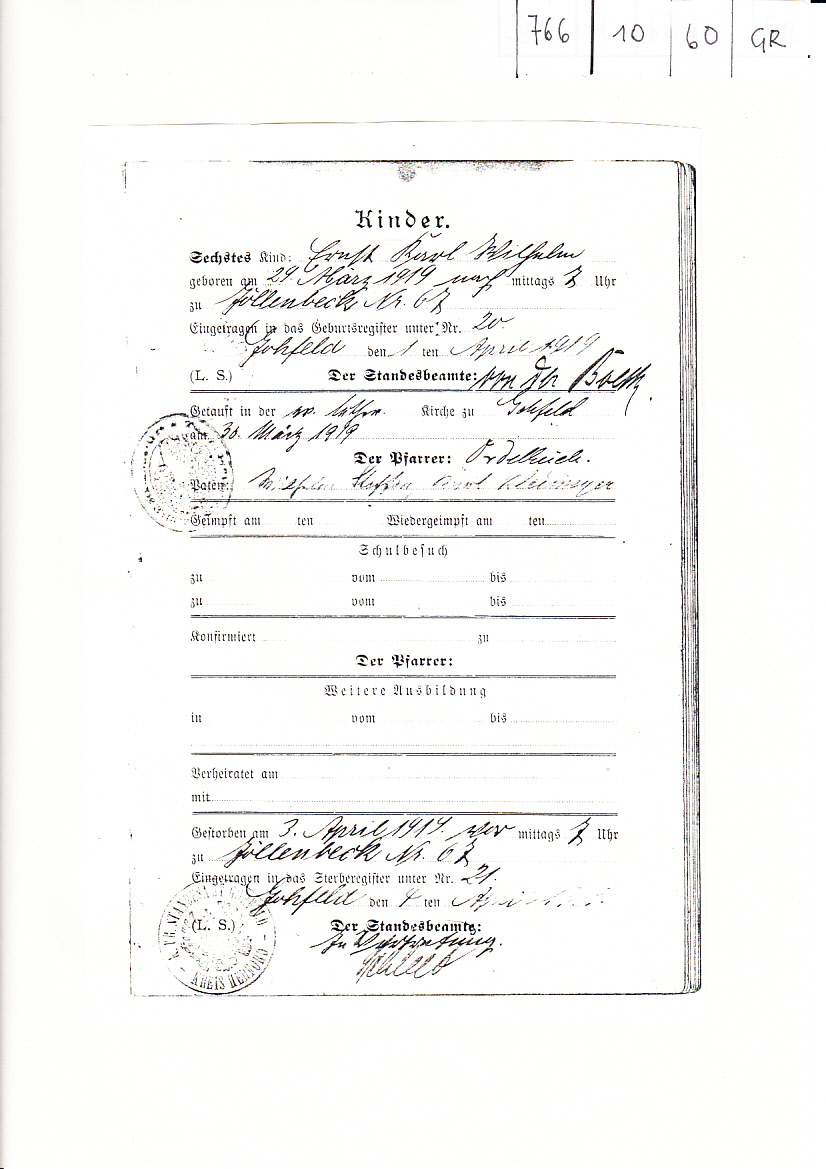 766 10 60 GR
Kinder.
Sechstes Kind: Ernst Karl Wilhelm
geboren am 29. März 1919 nach mittags 7 Uhr
zu Jöllenbeck Nr. 67
Eingetragen in das Geburtsregister unter Nr. 20.
Gohfeld den 1 ten April 1919
(L. S.) Der Standesbeamte: von der
Getauft in der ev. luther. Kirche zu Gohfeld
am 30. März 1919
Der Pfarrer:
Paten: Wilhelm Karl
Geimpft am ten Wiedergeimpft am ten
Schulbesuch
zu vom bis
zu vom bis
Konfirmiert zu
Der Pfarrer:
Weitere Ausbildung
in vom bis
Verheiratet am
mit
Gestorben am 3. April 1919. vor mittags 7 Uhr
zu Jöllenbeck Nr. 67
Eingetragen in das Sterberegister unter Nr. 21.
Gohfeld den 4 ten April
(L. S.) Der Standesbeamte:
In Vertretung.
KREIS HERFORD